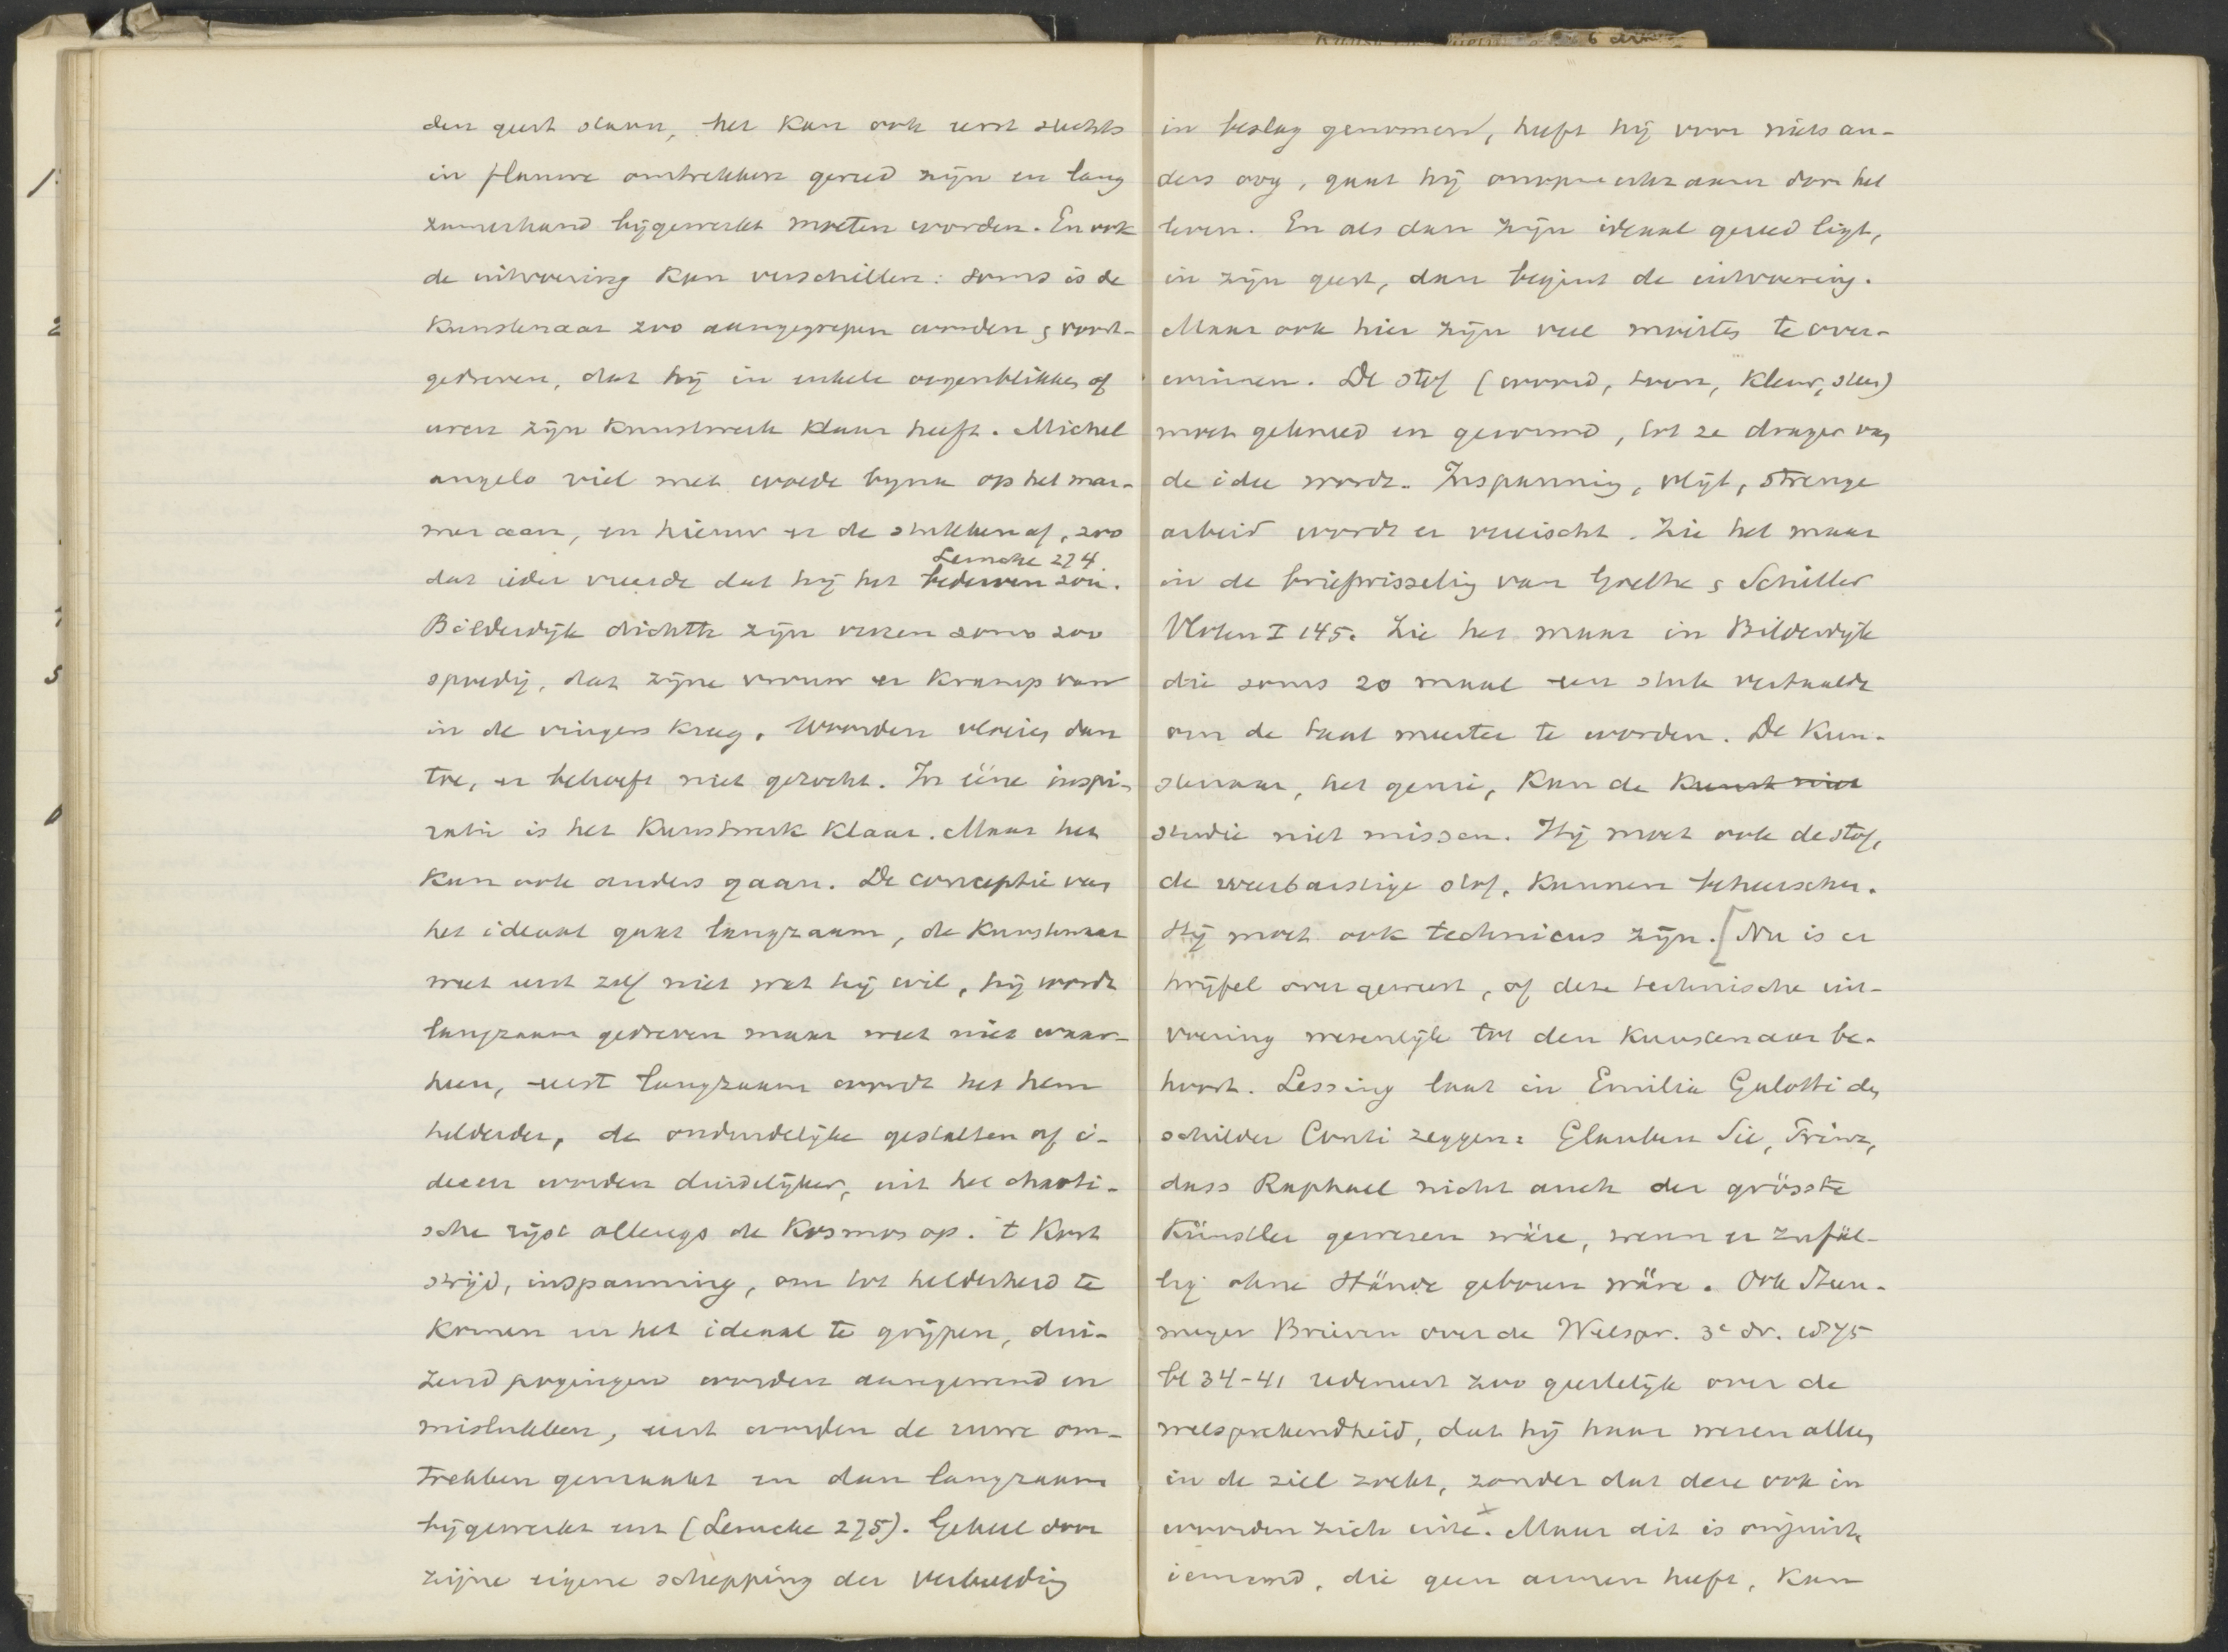 den geest staan, het kan ook eerst slechts
in flauwe omtrekken gereed zijn en lang
zamerhand bijgewerkt moeten worden. En ook
de uitvoering kan verschillen: soms is de
Kunstenaar zoo aangegrepen worden & voort-
gedreven, dat hij in enkele oogenblikken of
uren zijn kunstwerk klaar heeft. Michel
angelo viel met woede bijna op het mar-
mer aan, en hieuw er de stukken af, zoo
Lemcke 274.
dat ieder vreesde dat hij het bederven zou.
Bilderdijk dichtte zijn verzen soms zoo
spoedig, dat zijne vrouw er kramp van
in de vingers kreeg. Woorden vloeien dan
toe, er behoeft niet gezocht. In eéne inspi-
ratie is het Kunstwerk klaar. Maar het
kan ook anders gaan. De conceptie van
het ideaal gaat langzaam, de Kunstenaar
weet eerst zelf niet wat hij wil, hij wordt
langzaam gedreven maar weet niet waar-
heen, eerst langzaam wordt het hem
helderder, de onduidelijke gestalten of i-
deeen worden duidelijker, uit het chaoti-
sche rijst allengs de Kosmos op. 't Kost
strijd, inspanning, om tot helderheid te
komen en het ideaal te grijpen, dui-
zend pogingen worden aangewend en
mislukken, eerst worden de ruwe om-
trekken gemaakt en dan langzaam
bijgewerkt enz (Lemcke 275). Geheel door
zijne eigene schepping der verbeelding
in beslag genomen, heeft hij voor niets an-
ders oog, gaat hij onopmerkzaam door het
leven. En als dan zijn ideaal gereed ligt,
in zijn geest, dan begint de uitvoering.
Maar ook hier zijn veel moeites te over-
winnen. De stof (woord, toon, kleur, steen)
moet gekneed en gevormd, tot ze drager van
de idee wordt. Inspanning, vlijt, strenge
arbeid wordt er vereischt. Zie het maar
in de briefwisseling van Goethe & Schiller
Vloten I 145. Zie het maar in Bilderdijk
die soms 20 maal een stuk vertaalde
om de taal meester te worden. De Kun-
stenaar, het genie, kan de Kunst niet
studie niet missen. Hij moet ook de stof,
de weerbarstige stof, kunnen beheerschen.
Hij moet ook technicus zijn. [Nu is er
twijfel over geweest, of deze technische uit-
voering wezenlijk tot den Kunstenaar be-
hoort. Lessing laat in Emilia Galotti den
schilder Conti zeggen: Glauben Sie, Prinz,
dass Raphael nicht auch der grösste
Künstler gewesen wäre, wenn er zufäl-
lig ohne Hände geboren wäre. Ook Steen-
meyer Brieven over de Welspr. 3e dr. 1875
bl 34-41 redeneert zoo geestelijk over de
welsprekendheid, dat hij haar wezen alleen
in de ziel zoekt, zonder dat deze ook in
woorden zich uite. x Maar dit is onjuist,
iemand, die geen armen heeft, kan